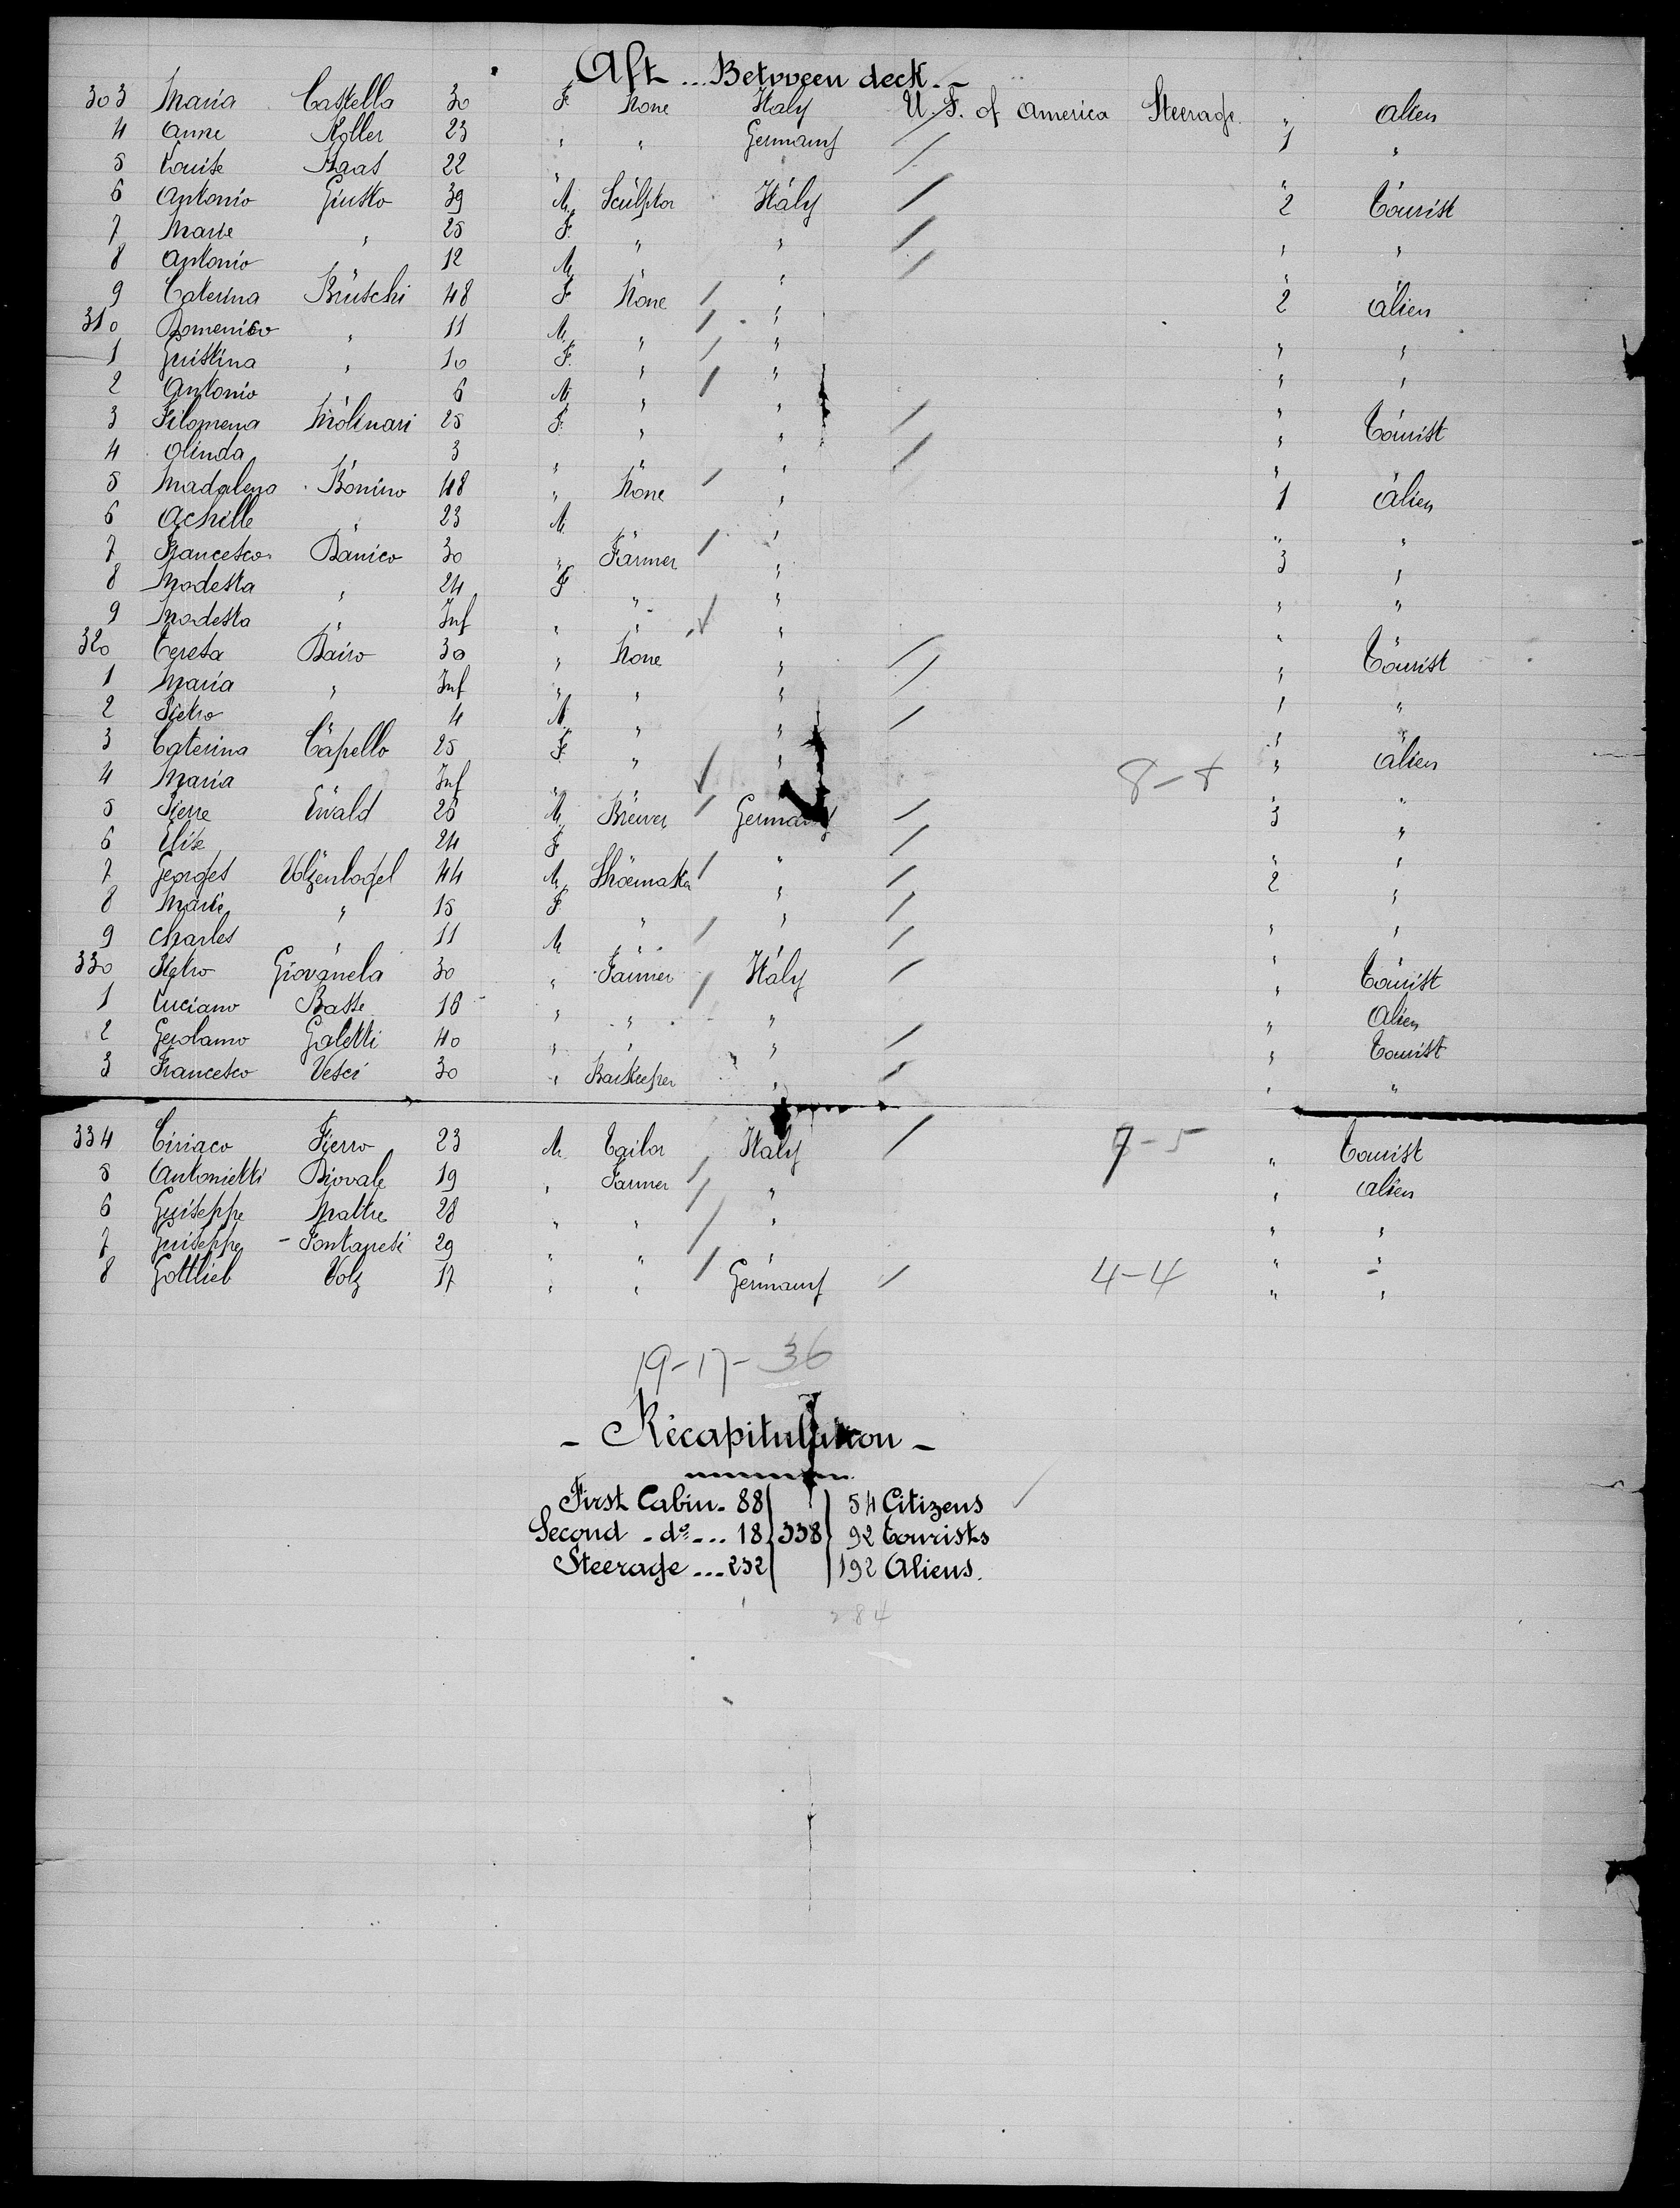 Aft... Between deck.-
303 Maria Castella 30 F. None Italy U.S. of America Steerage " alien
4 Anne Koller 23 " " Germany 1 "
5 Louise Haas 22 "
6 Antonio Giusto 39 M. Sculptor Italy 2 Tourist
7 Marie " 25 F. " " " "
8 Antonio 12 M. "
9 Caterina Bruschi 48 F. None " 2 alien
310 Domenico " 11 M. " " " "
1 Guistina " 10 F. " " " "
2 Antonio 6 M. " "
3 Filomena Molinari 25 F. " " " Tourist
4 Olinda 3 " "
5 Madalena Bonino 48 " None " 1 alien
6 Achille " 23 M. " " "
7 Francesco Banico 30 " Farmer " 3 "
8 Modesta " 24 F " " " "
9 Modesta " Inf " " "
320 Teresa Bairo 30 " None " " Tourist
1 Maria " Inf " " " " "
2 Pietro 4 M. " " " "
3 Caterina Capello 25 F. " " " alien
4 Maria Inf " 8-8 "
5 Pierre Ewald 25 M. Brewer Germany 3 "
6 Elise 24 F "
7 Georges Volzenlogel 44 M. Shoemaker " 2 "
8 Marie " 15 F " " " "
9 Charles " 11 M
330 Pietro Giovanela 30 " Farmer Italy " Tourist
1 Luciano Basse 16 " " " " Alien
2 Gerolamo Galetti 40 " " " " Tourist
3 Francesco Vesci 30 " Barkeeper " " "
334 Ciriaco Fierro 23 M. Tailor Italy 7-5 " Tourist
5 Antonietti Biovale 19 " Farmer " " alien
6 Guiseppe Mattre 28 " " " " "
7 Guiseppe - Fontanesi 29 " " " " "
8 Gottlieb Volz 17 " " Germany 4-4 " "
19-17-36
- Récapitulation -
First Cabin. 88 } 54 Citizens
Second - do - ... 18 } 338 } 92 Tourists
Steerage ... 232 } 192 Aliens.
284